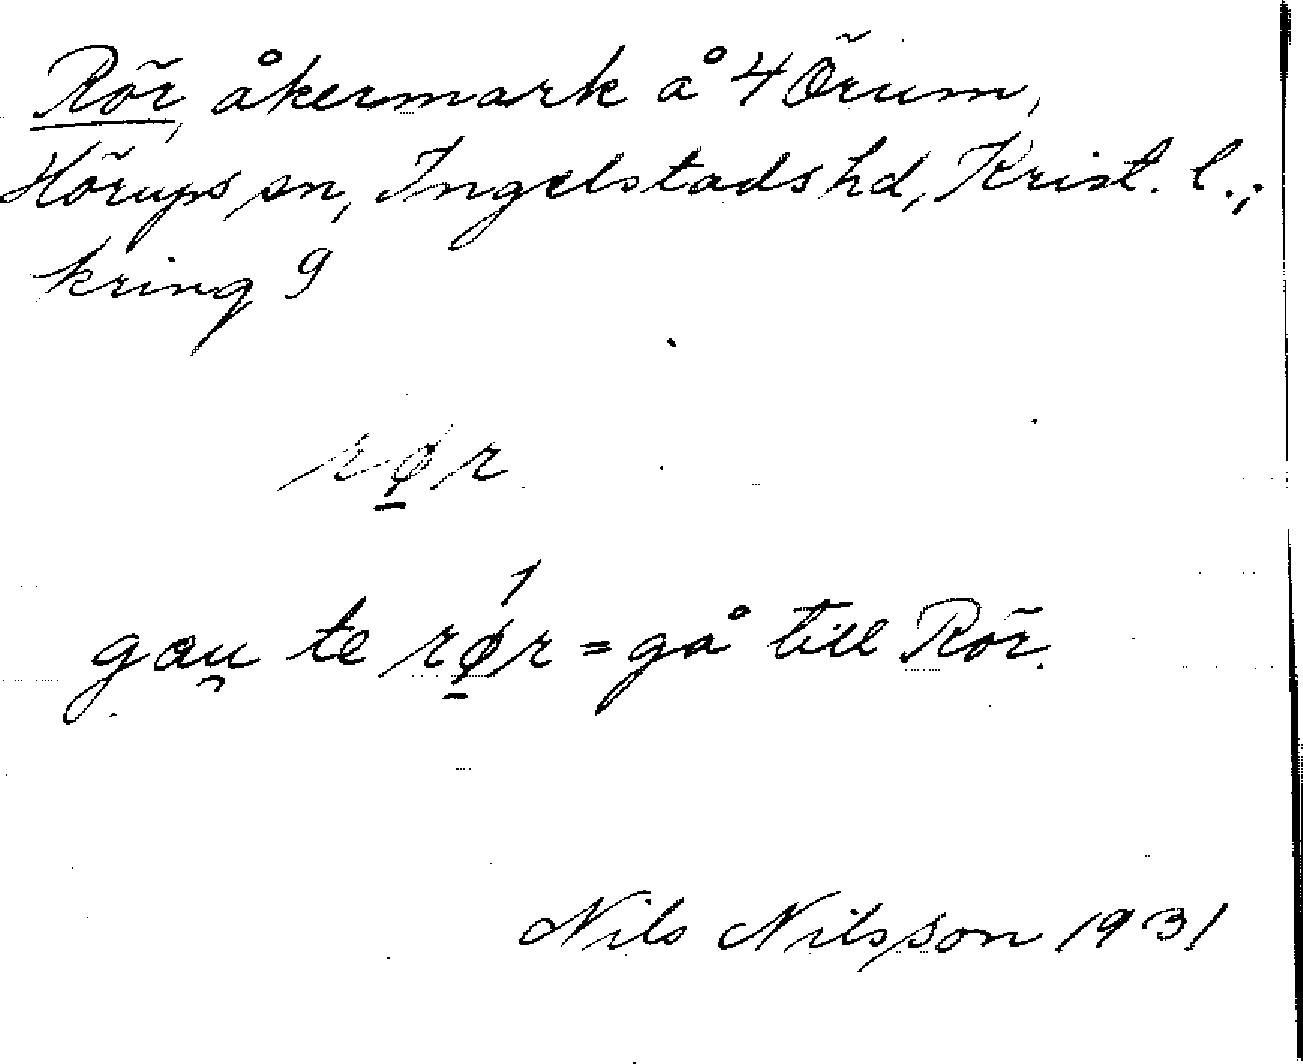 Rör, åkermark å 4 Örum,
Hörups sn, Ingelstads hd, Krist. l.,
kring 9
rø̠r
gau̯ te rǿ̠r = gå till Rör.
Nils Nilsson 1931